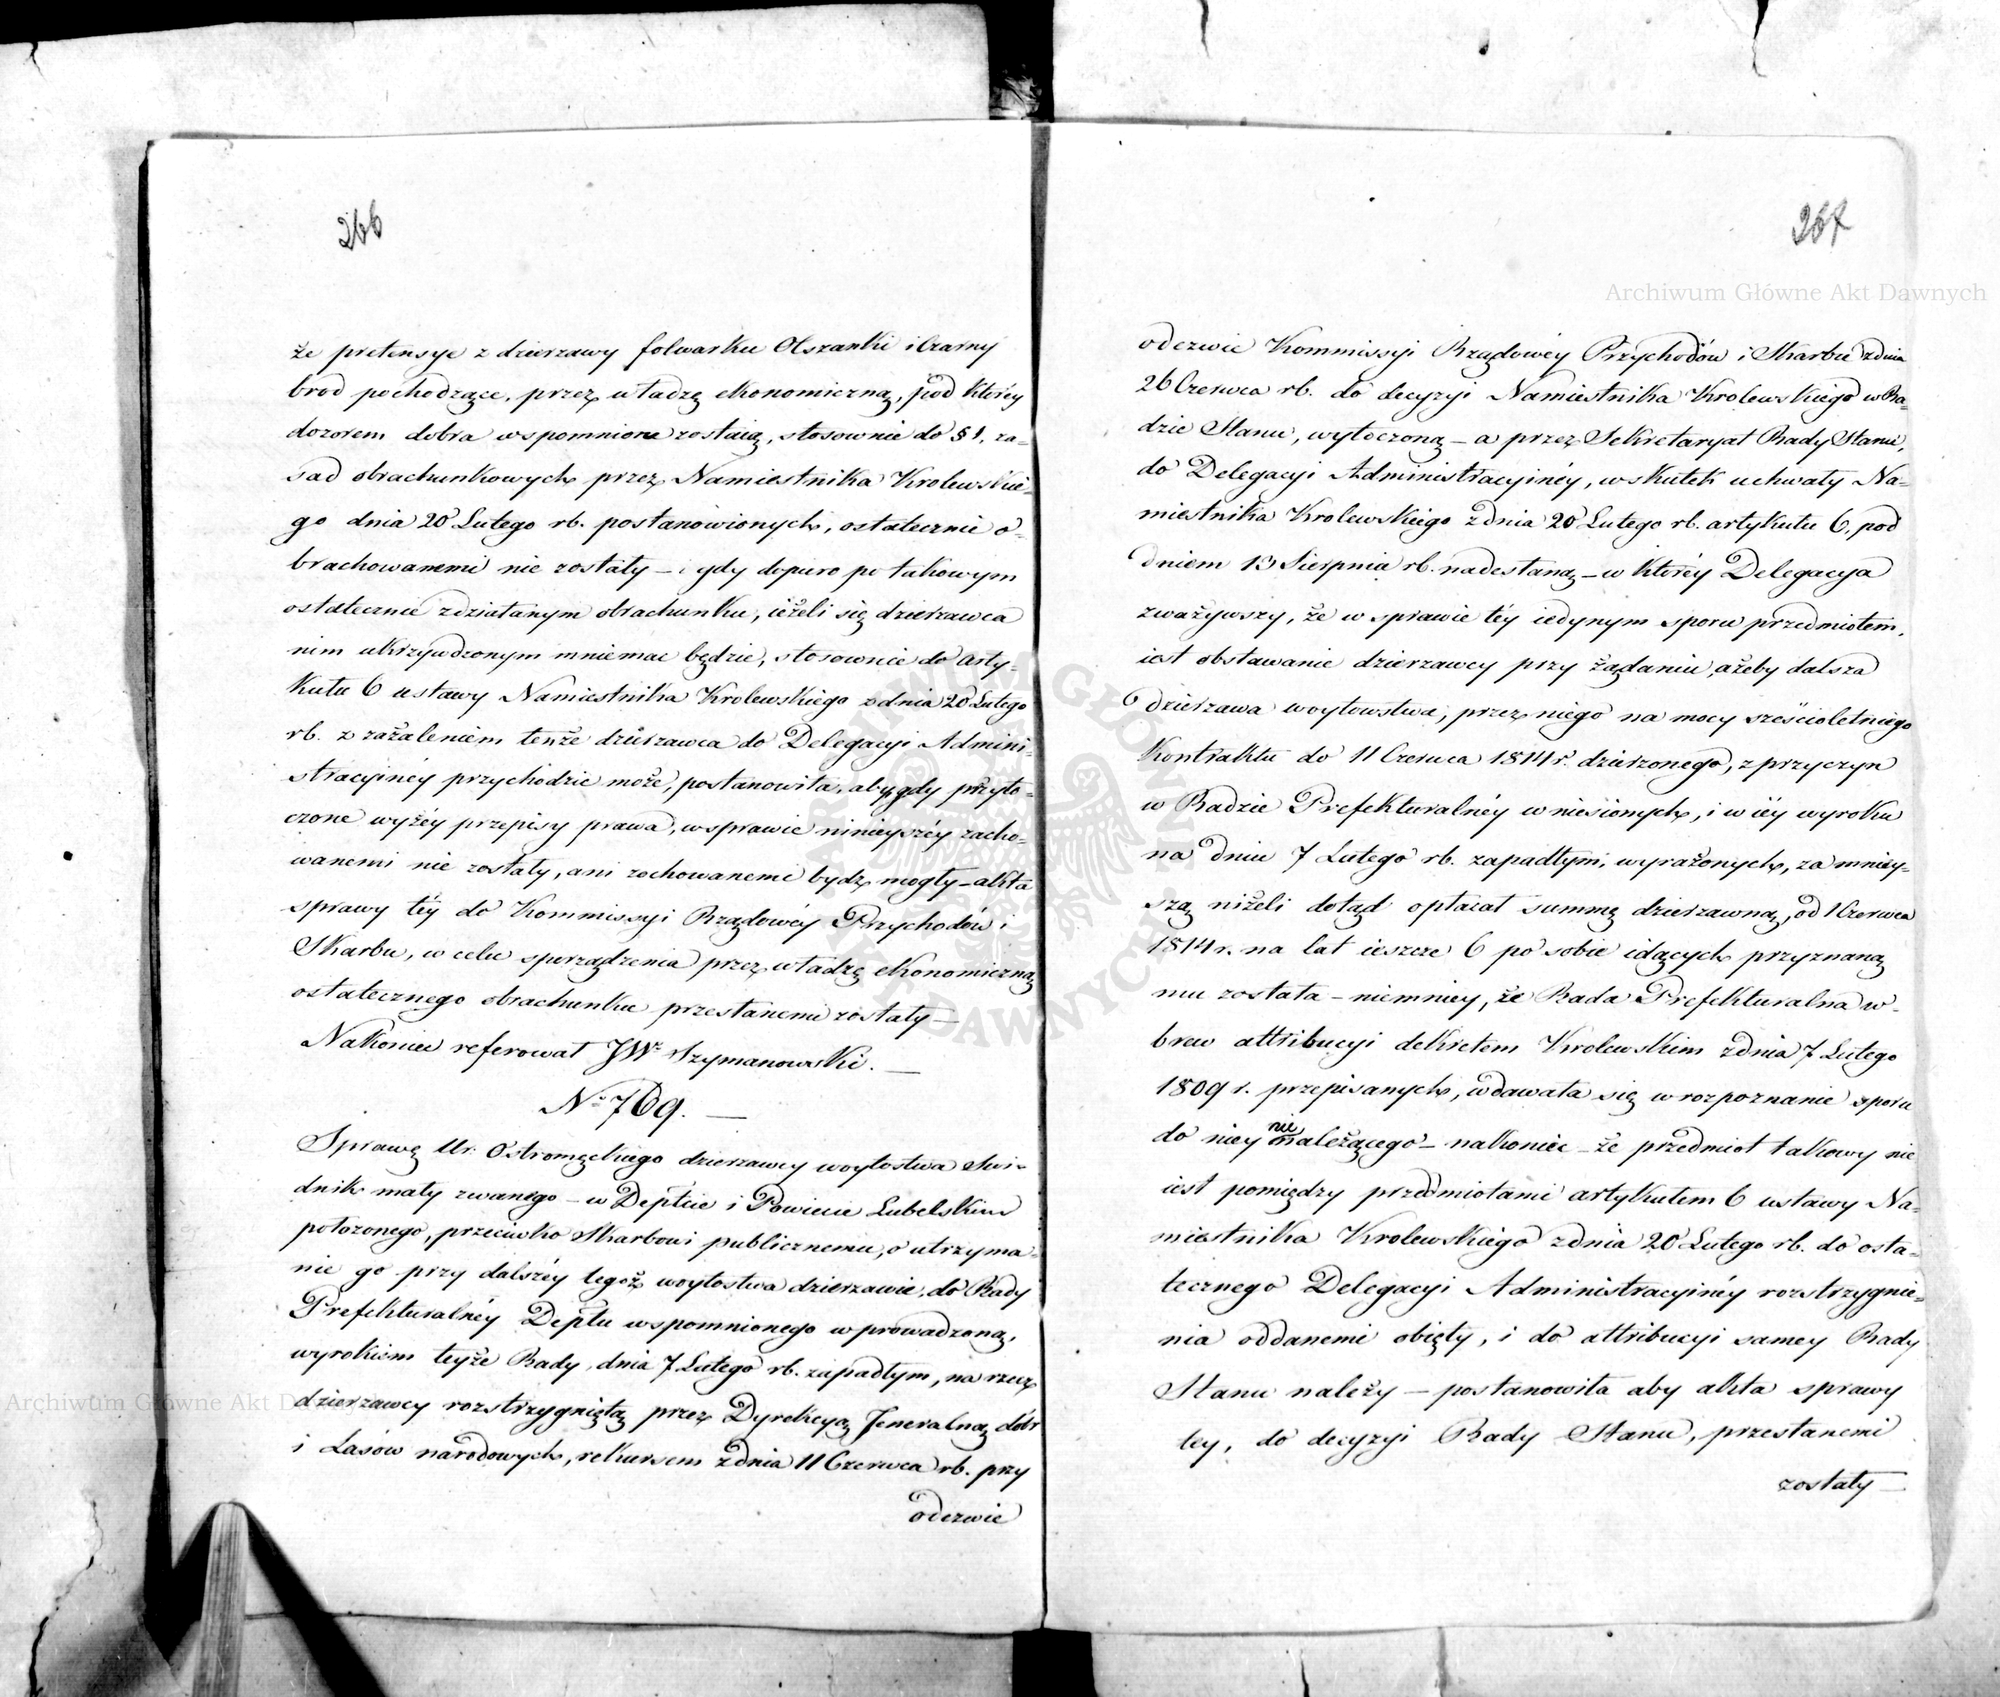 266
że pretensye z dzierzawy folwarku Olszanki i Czarny
brod pochodzące, przez władzę ekonomiczną, pod którey
dozorem dobra wspomnione zostaią, stosownie do § 1, za-
sad obrachunkowych przez Namiestnika Krolewskie-
go dnia 20 Lutego rb. postanowionych, ostatecznie o-
brachowanemi nie zostały – i gdy dopiero po takowym
ostatecznie zdziałanym obrachunku, ieżeli się dzierzawca
nim ukrzywdzonym mniemac będzie, stosownie do arty-
kułu 6 ustawy Namiestnika Krolewskiego z dnia 20 Lutego
rb. z zażaleniem tenże dzierzawca do Delegacyi Admini-
stracyinéy przychodzic może, postanowiła, aby gdy przyto-
czone wyżéy przepisy prawa, w sprawie ninieyszéy zacho-
wanemi nie zostały, ani zachowanemi bydz mogły – akta
sprawy téy do Kommissyi Rządowéy Przychodów i
Skarbu, w celu sporządzenia przez władzę ekonomiczną
ostatecznego obrachunku przesłanemi zostały –
Nakoniec referował JWr Szymanowski. –
Nr 769. –
Sprawę Ur: Ostromęckiego dzierzawcy woytostwa Swi-
dnik mały zwanego – w Depcie i Powiecie Lubelskim
położonego, przeciwko Skarbowi publicznemu, o utrzyma-
nie go przy dalszéy tegoż woytostwa dzierzawie, do Rady
Prefekturalnéy Deptu wspomnionego wprowadzoną,
wyrokiem teyże Rady, dnia 7 Lutego rb. zapadłym, na rzecz
dzierzawcy rozstrzygniętą przez Dyrekcyą Jeneralną dóbr
i Lasów narodowych, rekursem z dnia 11 Czerwca rb. przy
odezwie
267
Archiwum Główne Akt Dawnych
odezwie Kommissyi Rządowéy Przychodów i Skarbu z dnia
26 Czerwca rb. do decyzyi Namiestnika Krolewskiego w Ra-
dzie Stanu, wytoczoną – a przez Sekretaryat Rady Stanu,
do Delegacyi Administracyinéy, w skutek uchwały Na-
miestnika Krolewskiego z dnia 20 Lutego rb. artykułu 6, pod
dniem 13 Sierpnia rb. nadesłaną – w któréy Delegacya
zważywszy, że w sprawie téy iedynym sporu przedmiotem,
iest obstawanie dzierzawcy przy żądaniu, ażeby dalsza
dzierzawa woytowstwa, przez niego na mocy sześcioletniego
Kontraktu do 11 Czerwca 1814 r. dzierzonego, z przyczyn
w Radzie Prefekturalnéy wniesionych, i w iéy wyroku
na dniu 7 Lutego rb. zapadłym, wyrażonych, za mniey-
szą niżeli dotąd opłacał summę dzierzawną, od 1 Czerwca
1814 r. na lat ieszcze 6 po sobie idących przyznaną
mu została – niemniey, że Rada Prefekturalna w-
brew attribucyi dekretem Krolewskim z dnia 7 Lutego
1809 r. przepisanych, wdawała się w rozpoznanie sporu
do niey nie należącego – nakoniec – że przedmiot takowy nie
iest pomiędzy przedmiotami artykułem 6 ustawy Na-
miestnika Krolewskiego z dnia 20 Lutego rb. do osta-
tecznego Delegacyi Administracyinéy rozstrzygnie-
nia oddanemi obięty, i do attribucyi samey Rady
Stanu należy – postanowiła aby akta sprawy
tey, do decyzyi Rady Stanu, przesłanemi
zostały –
Archiwum Główne Akt Dawnych